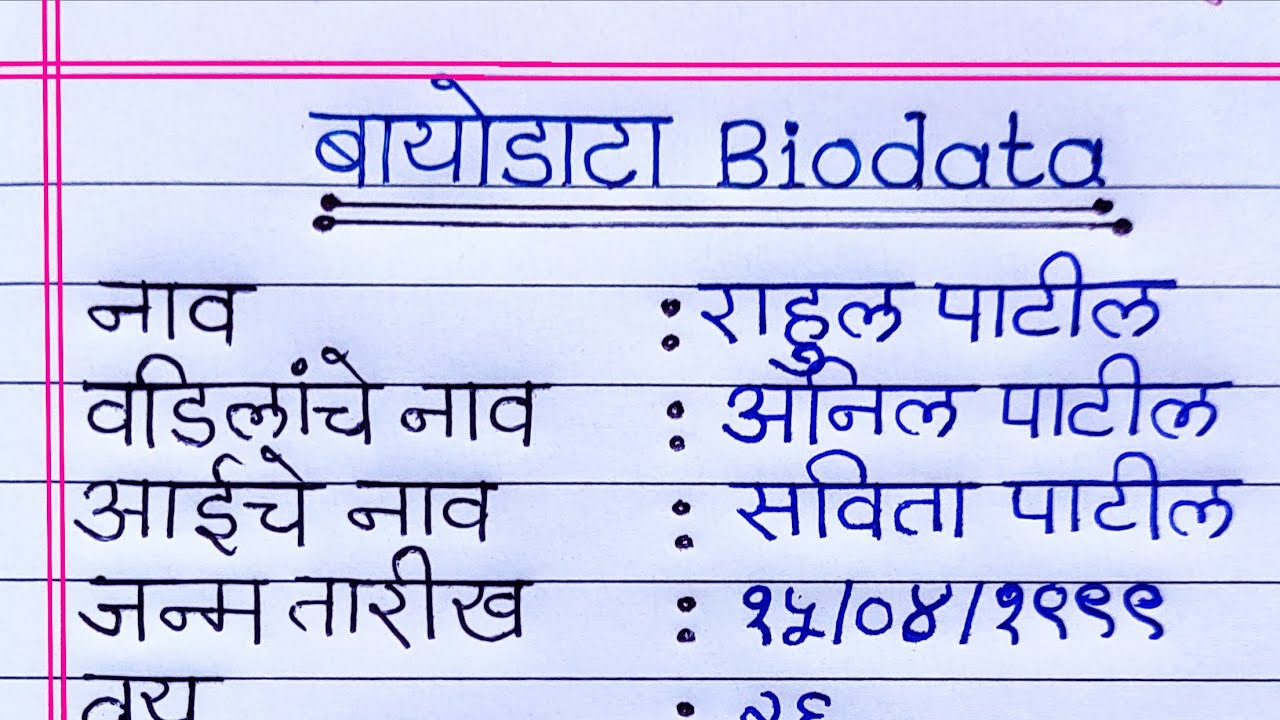 बायोडाटा Biodata
नाव : राहुल पाटील
वडिलांचे नाव : अनिल पाटील
आईचे नाव : सविता पाटील
जन्म तारीख : १५/०४/१९९९
वय : २६